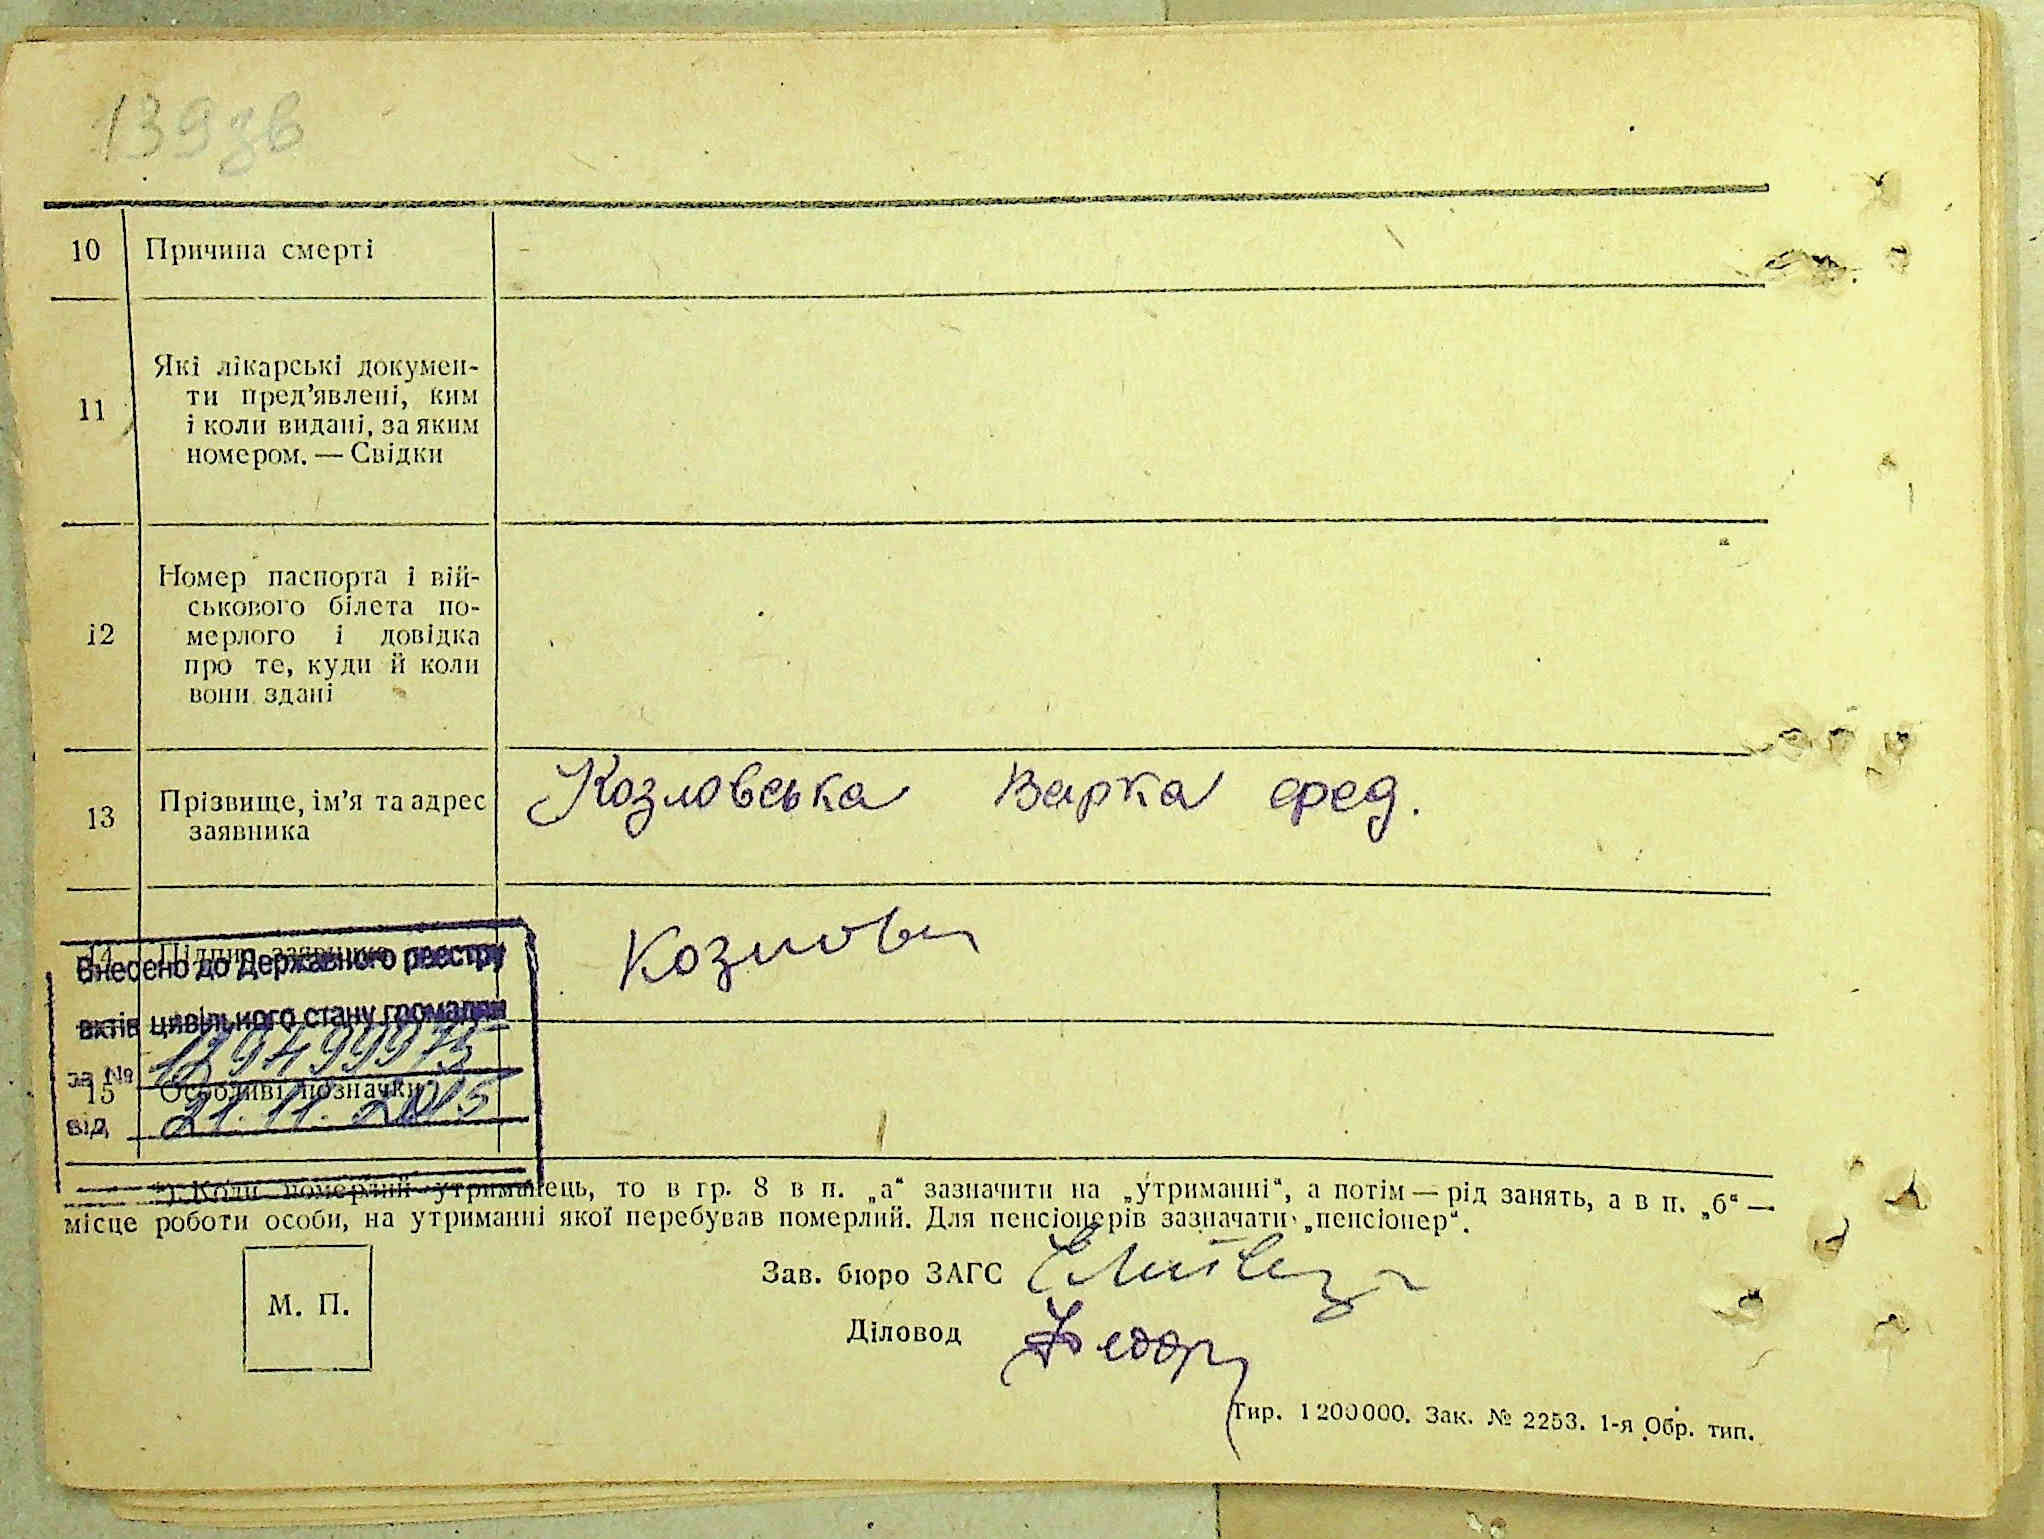 139зв
10 Причина смерті
11 Які лікарські докумен-
ти пред’явлені, ким
і коли видані, за яким
номером. — Свідки
12 Номер паспорта і вій-
ськового білета по-
мерлого і довідка
про те, куди й коли
вони здані
13 Прізвище, ім’я та адрес
заявника
Козловська Варка фед.
14 Підпис заявника
Козлов
Внесено до Державного реєстру
актів цивільного стану громадян
за № 129499975
15 Особливі позначки
від 21.11.2015
*) Коли померлий утриманець, то в гр. 8 в п. „а“ зазначити на „утриманні“, а потім — рід занять, а в п. „б“ —
місце роботи особи, на утриманні якої перебував померлий. Для пенсіонерів зазначати „пенсіонер“.
Зав. бюро ЗАГС
М. П.
Діловод
Тир. 1200000. Зак. № 2253. 1-я Обр. тип.